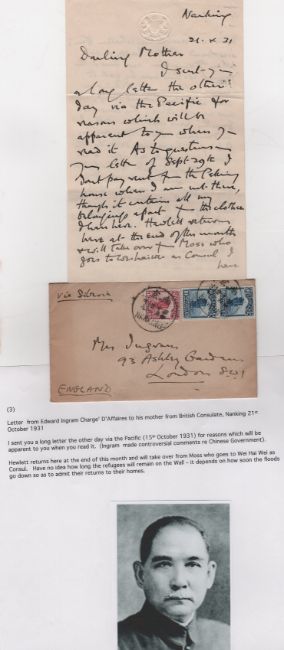 Nanking
21. X. 31
Darling Mother
I sent you
a long letter the other
day via the Pacific for
reasons which will be
apparent to you when you
read it. As to questions in
your letter of Sept 29th I
don't pay rent for the Peking
house when I am not there,
though it contains all my
belongings apart from the clothes
I have here. Hewlett returns
here at the end of this month
& will take over from Moss who
goes to Wei-hai-wei as Consul I
have
Via Siberia
Mrs Ingram
93 Ashley Gardens
London SW1
ENGLAND
(3)
Letter from Edward Ingram Charge' D'Affaires to his mother from British Consulate, Nanking 21st
October 1931
I sent you a long letter the other day via the Pacific (15th October 1931) for reasons which will be
apparent to you when you read it. (Ingram made controversial comments re Chinese Government).
Hewlett returns here at the end of this month and will take over from Moss who goes to Wei Hai Wei as
Consul. Have no idea how long the refugees will remain on the Wall - it depends on how soon the floods
go down so as to admit their returns to their homes.